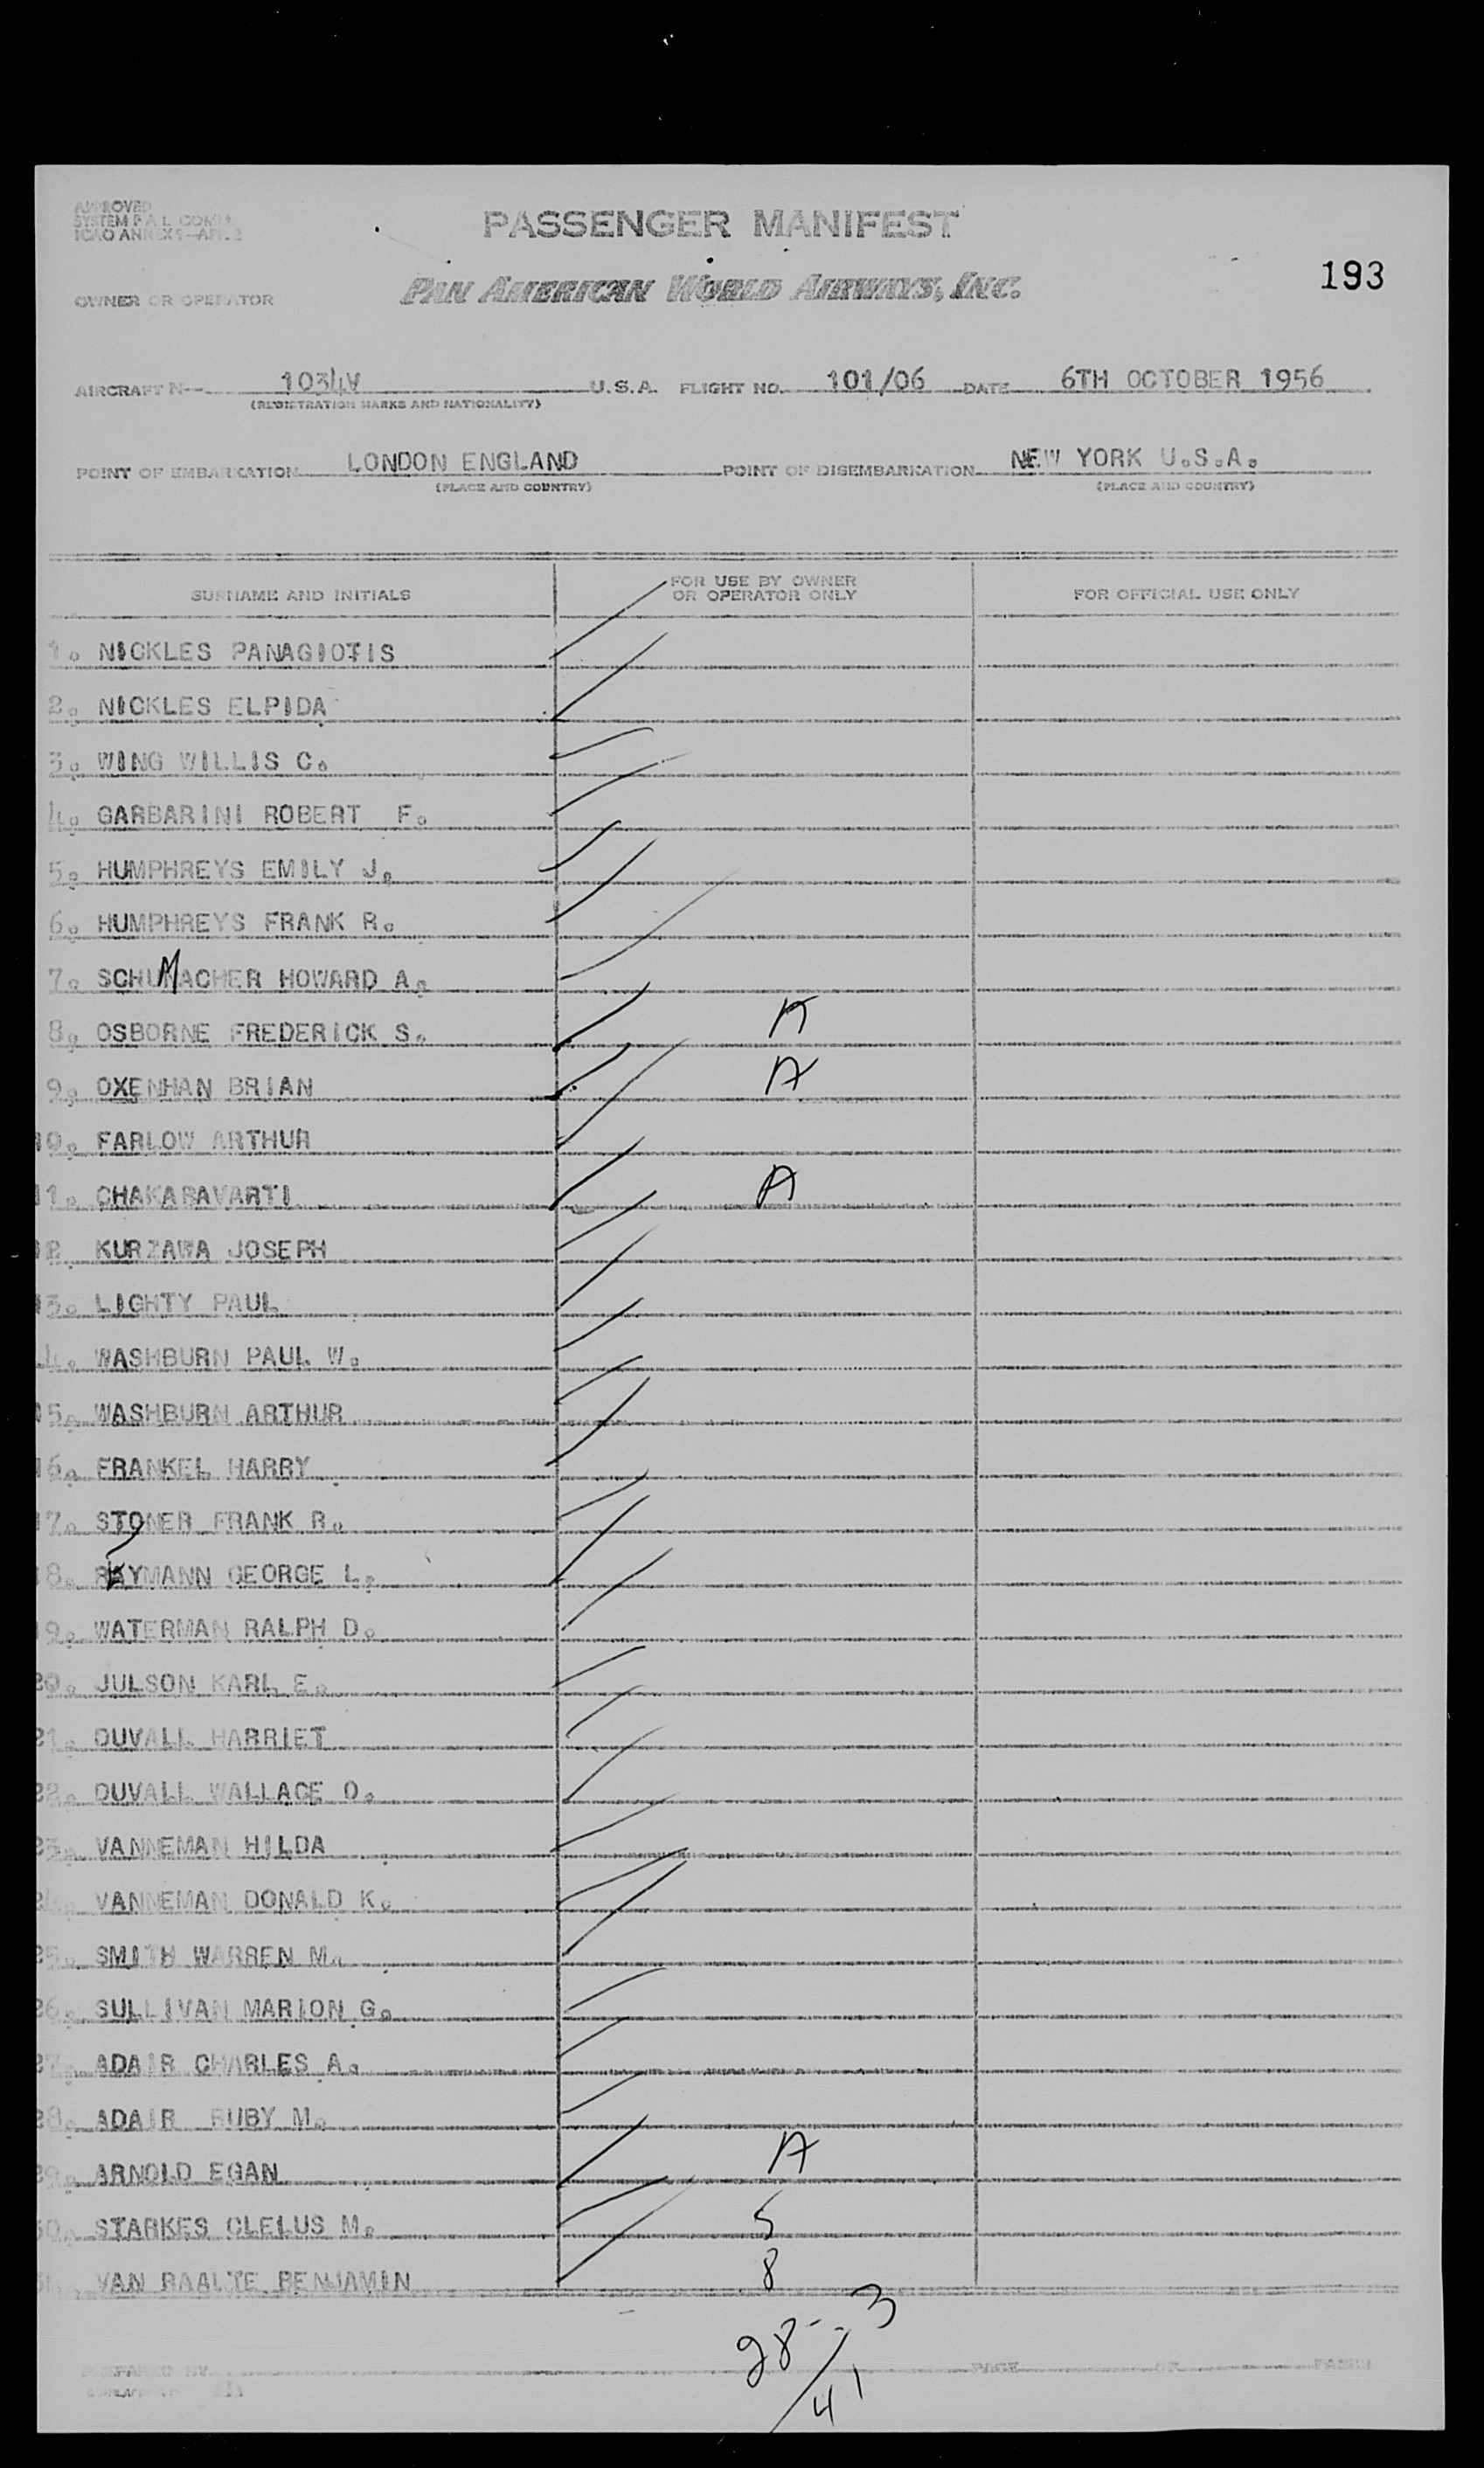 APPROVED
SYSTEM P.A.L. COMM.
ICAO ANNEX 9—APP. 2
PASSENGER MANIFEST
193
OWNER OR OPERATOR PAN AMERICAN WORLD AIRWAYS, INC.
AIRCRAFT N— 1034V U.S.A. FLIGHT NO. 101/06 DATE 6TH OCTOBER 1956
(REGISTRATION MARKS AND NATIONALITY)
POINT OF EMBARKATION LONDON ENGLAND POINT OF DISEMBARKATION NEW YORK U.S.A.
(PLACE AND COUNTRY) (PLACE AND COUNTRY)
SURNAME AND INITIALS FOR USE BY OWNER OR OPERATOR ONLY FOR OFFICIAL USE ONLY
1. NICKLES PANAGIOTIS
2. NICKLES ELPIDA
3. WING WILLIS C.
4. GARBARINI ROBERT F.
5. HUMPHREYS EMILY J.
6. HUMPHREYS FRANK R.
7. SCHUMACHER HOWARD A.
8. OSBORNE FREDERICK S. A
9. OXENHAN BRIAN A
10. FARLOW ARTHUR
11. CHAKARAVARTI A
12. KURZAWA JOSEPH
13. LIGHTY PAUL
14. WASHBURN PAUL W.
15. WASHBURN ARTHUR
16. FRANKEL HARRY
17. STONER FRANK R.
18. REYMANN GEORGE L.
19. WATERMAN RALPH D.
20. JULSON KARL E.
21. DUVALL HARRIET
22. DUVALL WALLACE O.
23. VANNEMAN HILDA
24. VANNEMAN DONALD K.
25. SMITH WARREN M.
26. SULLIVAN MARION G.
27. ADAIR CHARLES A.
28. ADAIR RUBY M.
29. ARNOLD EGAN A
30. STARKES CLELUS M. S
31. VAN RAALTE BENJAMIN 8
28 - 3
/41
PREPARED BY PAGE OF PAGES